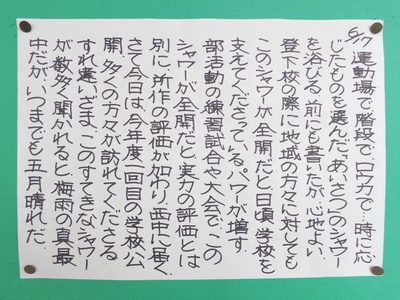 6/7 運動場で、階段で、ロウカで…時に応
じたものを選んだ「あいさつ」のシャワー
を浴びる。前にも書いたが、心地よい。
登下校の際に地域の方々に対しても
このシャワーが全開だと、日頃、学校を
支えてくださっているパワーが増す。
部活動の練習試合や大会で、この
シャワーが全開だと、実力の評価とは
別に、所作の評価が加わり、西中に届く。
さて、今日は、今年度一回目の学校公
開。多くの方々が訪れてくださる。
すれ違いざま、このすてきなシャワー
が数多く開かれると、梅雨の真最
中だが、いつまでも五月晴れだ。